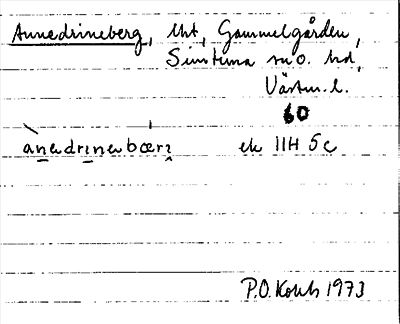 Annedrineberg, lht, Gammelgården,
Simtuna sn o. hd,
Västm. l.
60
ànedrinebær̨ ek 11H 5c
P.O. 1973